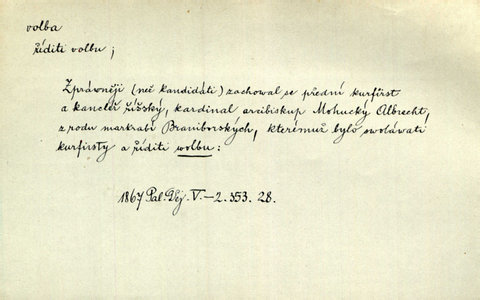 volba
říditi volbu;
Zprávněji (než kandidáti) zachoval se přední kurfirst
a kancléř říšský, kardinal arcibiskup Mohucký Albrecht,
z rodu markrabí Braniborských, kterémuž bylo svolávati
kurfirsty a říditi volbu:
1867 Pal. Děj. V.—2. 353. 28.